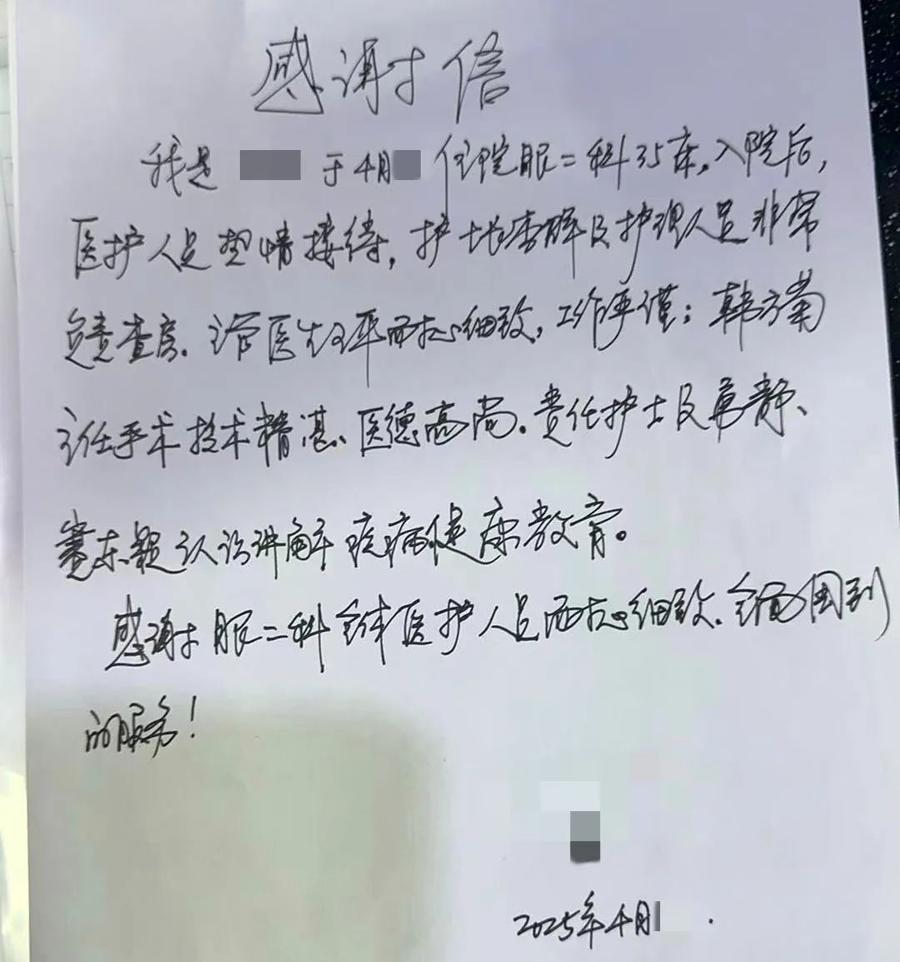 感谢信
我是 于4月 住院眼二科35床,入院后,
医护人员热情接待,护士长李辉及护理人员非常
负责查房.治管医生 耐心细致,工作严谨;韩方菊
主任手术技术精湛、医德高尚.责任护士 静、
东 认认讲解疾病健康教育。
感谢眼二科全体医护人员耐心细致.全面周到
的服务!
2025年4月